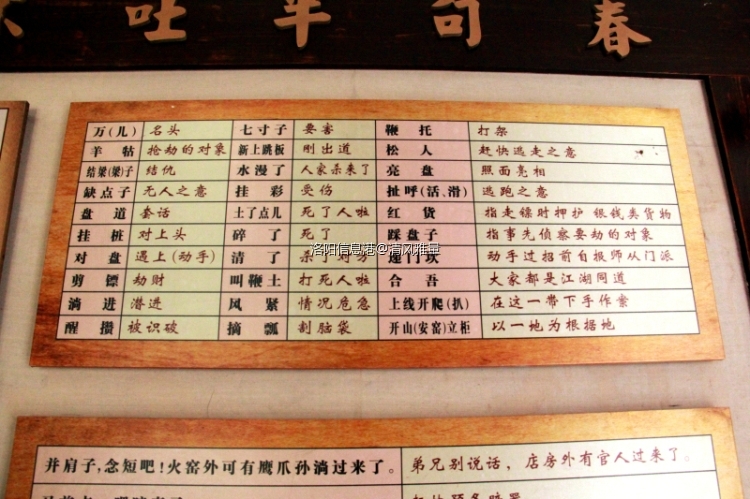 吐 平 句 春
万(儿) 名头 七寸子 要害 鞭托 打架
羊牯 抢劫的对象 新上跳板 刚出道 松人 赶快逃走之意
结梁(梁)子 结仇 水漫了 人家杀来了 亮盘 照面亮相
缺点子 无人之意 挂彩 受伤 扯呼(活、滑) 逃跑之意
盘道 套话 土了点儿 死了人啦 红货 指走镖时押护银钱类货物
挂桩 对上头 碎了 死了 踩盘子 指事先侦察要劫的对象
对盘 遇上(动手) 清了 动手过招前自报师从门派
剪镖 劫财 叫鞭土 打死人啦 合吾 大家都是江湖同道
淌进 潜进 风紧 情况危急 上线开爬(扒) 在这一带下手作案
醒攒 被识破 摘瓢 割脑袋 开山(安窑)立柜 以一地为根据地
洛阳信息港@清风雅量
并肩子,念短吧!火窑外可有鹰爪孙淌过来了。 弟兄别说话,店房外有官人过来了。